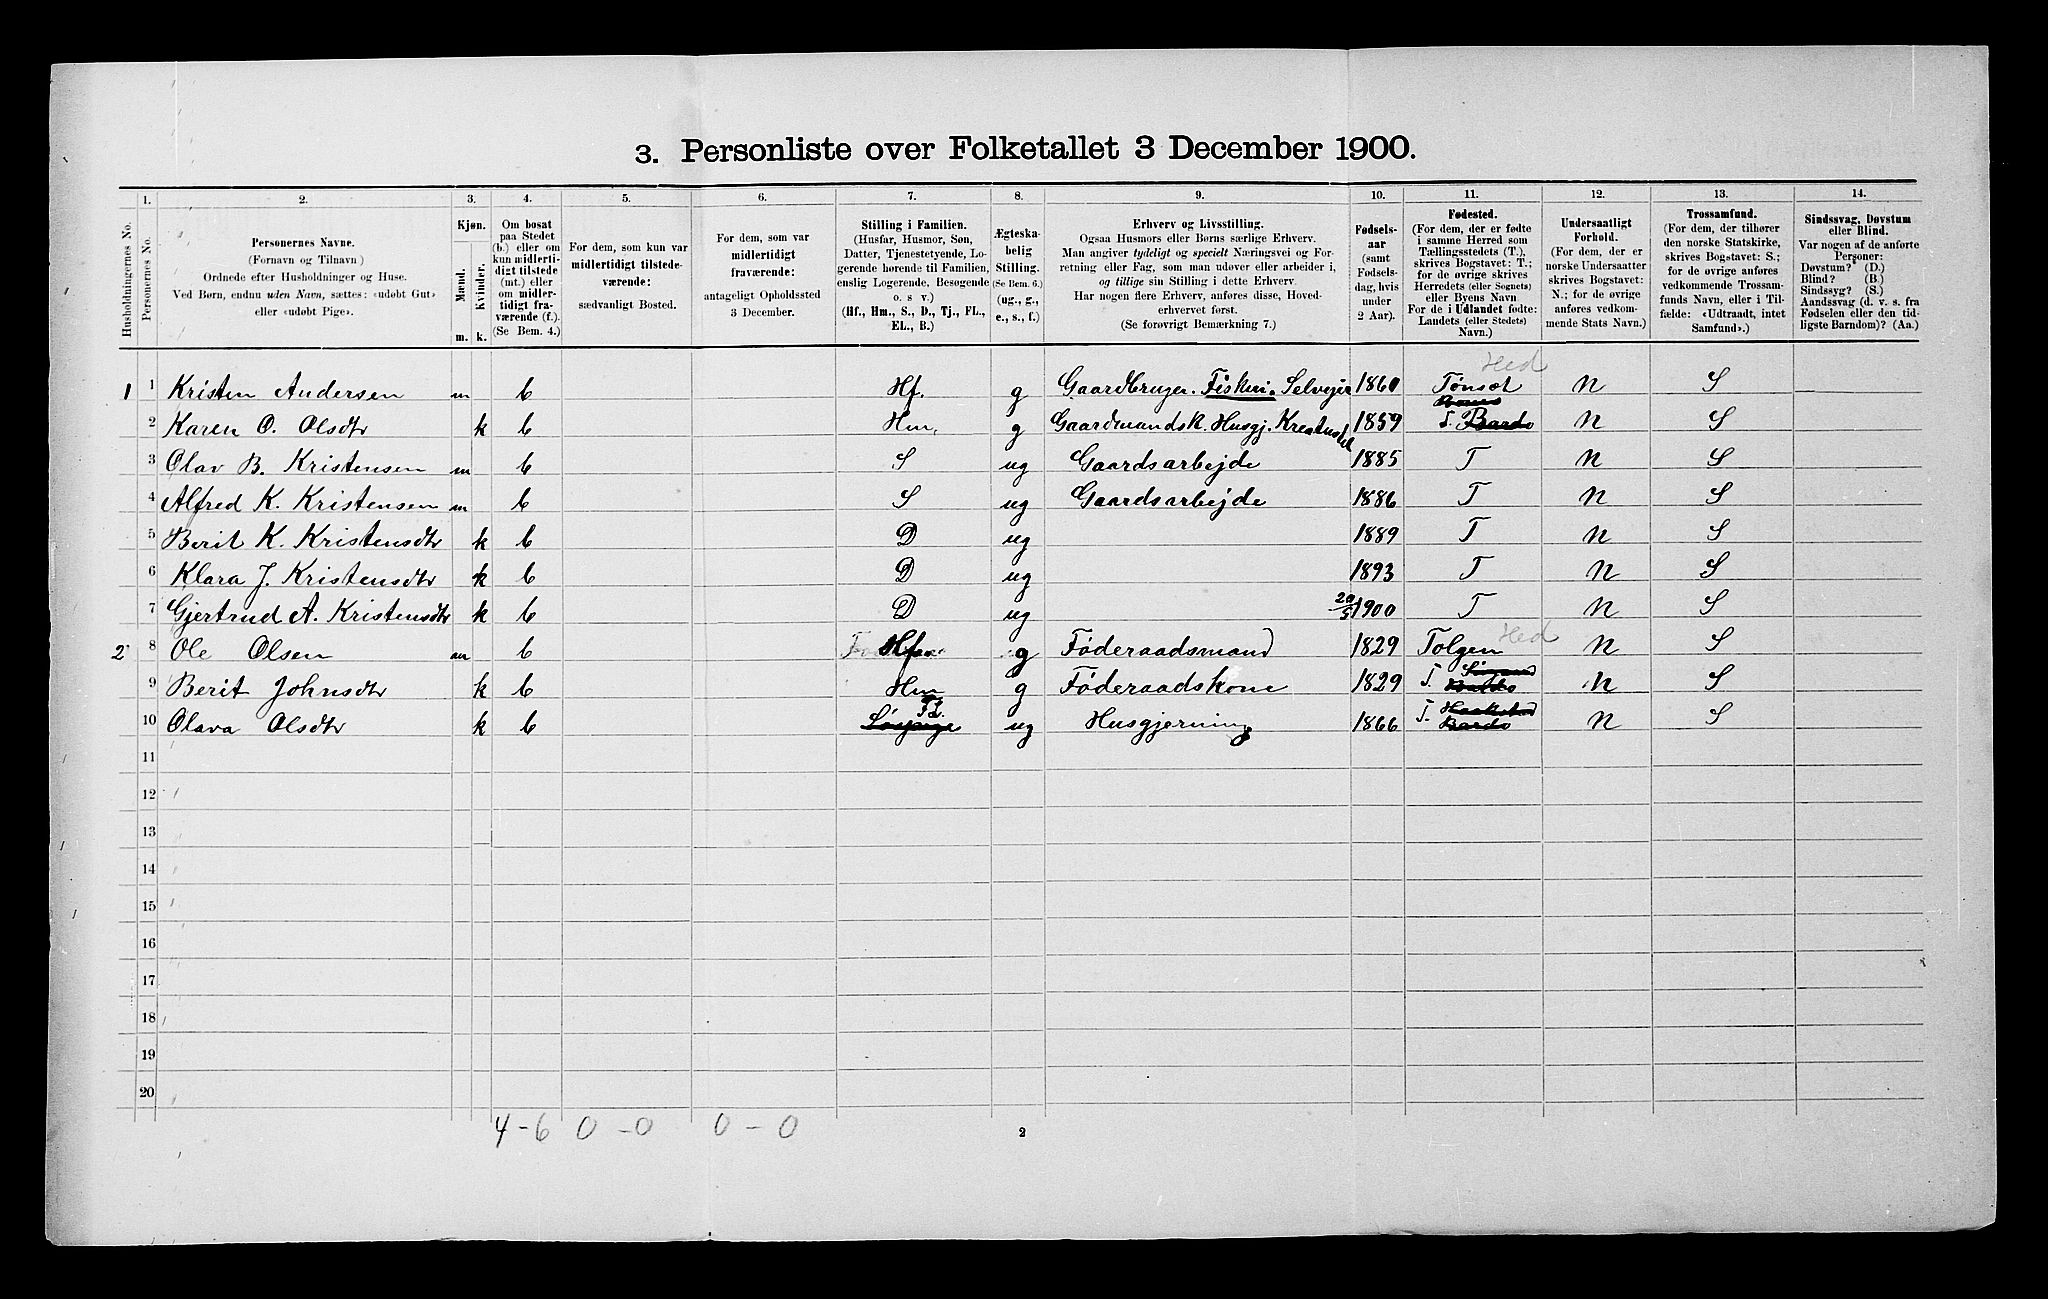 3. Personliste over Folketallet 3 December 1900.
Husholdningernes No.
1. Personernes No.
2. Personernes Navne.
(Fornavn og Tilnavn)
Ordnede efter Husholdninger og Huse.
Ved Børn, endnu uden Navn, sættes: «udøbt Gut»
eller «udøbt Pige».
3. Kjøn.
Mænd. Kvinder.
m. k.
4. Om bosat
paa Stedet
(b.) eller om
kun midlerti-
digt tilstede
(mt.) eller
om midler-
tidigt fra-
værende (f.).
(Se Bem. 4.)
5. For dem, som kun var
midlertidigt tilstede-
værende:
sædvanligt Bosted.
6. For dem, som var
midlertidigt
fraværende:
antageligt Opholdssted
3 December.
7. Stilling i Familien.
(Husfar, Husmor, Søn,
Datter, Tjenestetyende, Lo-
gerende hørende til Familien,
enslig Logerende, Besøgende
o. s v.)
(Hf., Hm., S., D., Tj., FL.,
EL., B.)
8. Ægteska-
belig
Stilling.
(Se Bem. 6.)
(ug., g.,
e., s., f.)
9. Erhverv og Livsstilling.
Ogsaa Husmors eller Børns særlige Erhverv.
Man angiver tydeligt og specielt Næringsvei og For-
retning eller Fag, som man udøver eller arbeider i,
og tillige sin Stilling i dette Erhverv.
Har nogen flere Erhverv, anføres disse, Hoved-
erhvervet først.
(Se forøvrigt Bemærkning 7.)
10. Fødsels-
aar
(samt
Fødsels-
dag, hvis
under
2 Aar).
11. Fødested.
(For dem, der er fødte
i samme Herred som
Tællingsstedets (T.),
skrives Bogstavet: T.;
for de øvrige skrives
Herredets (eller Sognets)
eller Byens Navn
For de i Udlandet fødte:
Landets (eller Stedets)
Navn.)
12. Undersaatligt
Forhold.
(For dem, der er
norske Undersaatter
skrives Bogstavet:
N.; for de øvrige
anføres vedkom-
mende Stats Navn.)
13. Trossamfund.
(For dem, der tilhører
den norske Statskirke,
skrives Bogstavet: S.;
for de øvrige anføres
vedkommende Trossam-
funds Navn, eller i Til-
fælde: «Udtraadt, intet
Samfund».)
14. Sindssvag, Døvstum
eller Blind.
Var nogen af de anførte
Personer:
Døvstum? (D.)
Blind? (B.)
Sindssyg? (S.)
Aandssvag (d. v. s. fra
Fødselen eller den tid-
ligste Barndom)? (Aa.)
Hed
1 1 Kristen Andersen m b Hf. g Gaardbruger. Fiskeri. Selveier 1860 Tønset N S
2 Karen O. Olsdtr k b Hm. g Gaardmandsk. Husgj. Kreaturstel 1859 T. Bardo N S
3 Olav B. Kristensen m b S ug Gaardsarbejde 1885 T N S
4 Alfred K. Kristensen m b S ug Gaardsarbejde 1886 T N S
5 Berit K. Kristensdtr k b D ug 1889 T N S
6 Klara J. Kristensdtr k b D ug 1893 T N S
7 Gjertrud A. Kristensdtr k b D ug 20/5 1900 T N S
Hed
2 8 Ole Olsen m b Hf g Føderaadsmand 1829 Tolgen N S
9 Berit Johnsdtr k b Hm g Føderaadskone 1829 T. N S
10 Olava Olsdtr k b FL. ug Husgjerning 1866 T. Bardo N S
11
12
13
14
15
16
17
18
19
20
4-6 0-0 0-0
2